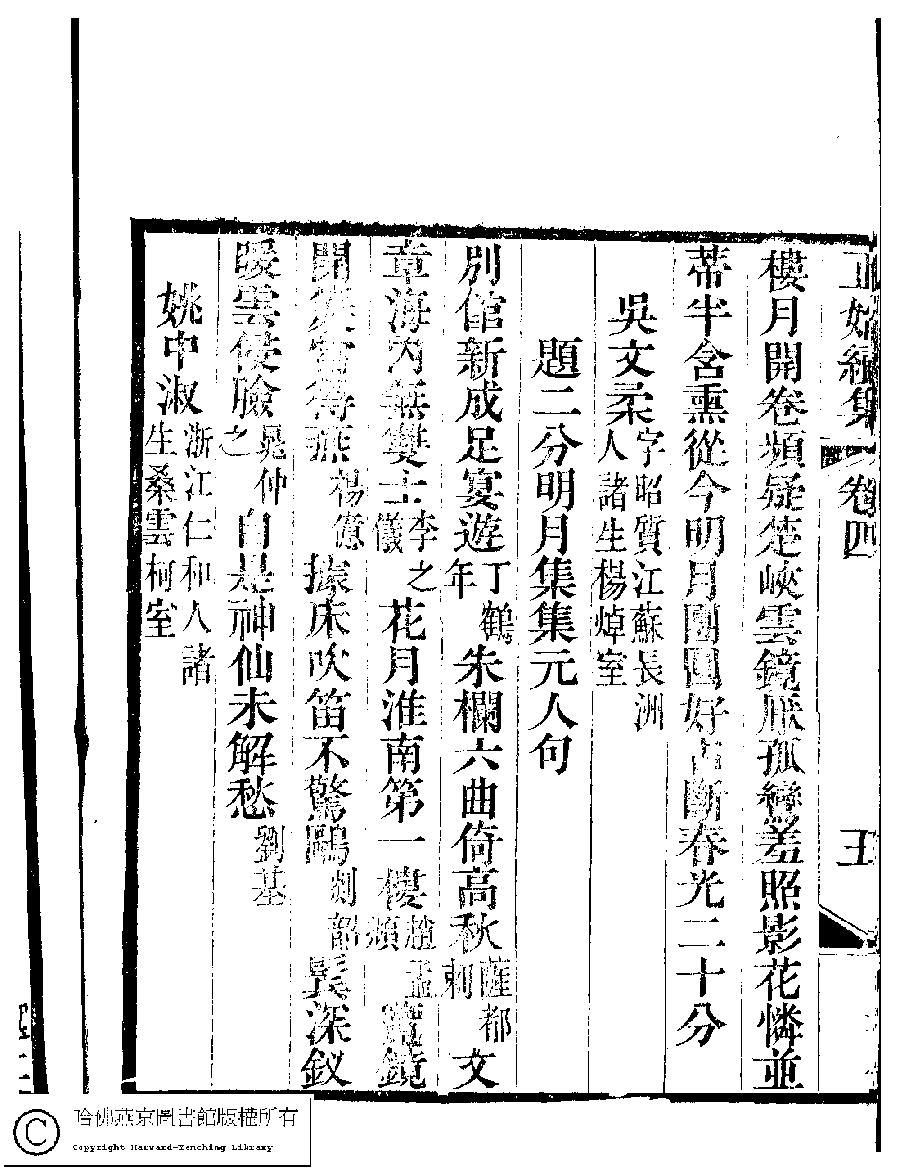 正始續集 卷四
樓月開卷頻疑楚峽雲鏡厭孤鸞羞照影花憐並
蒂半含熏從今明月團圓好占斷春光二十分
吳文柔字昭質江蘇長洲人諸生楊焯室
題二分明月集集元人句
別館新成足宴遊丁鶴年朱欄六曲倚高秋薩都剌文
章海內無雙士李之儀花月淮南第一樓趙孟頫寶鏡
開得燕楊億據床吹笛不驚鷗剡韶鬂深釵
暖雲侵臉晁仲之自是神仙未解愁劉基
姚中淑浙江仁和人諸生桑雲柯室
哈佛燕京圖書館版權所有
Copyright Harvard-Yenching Library